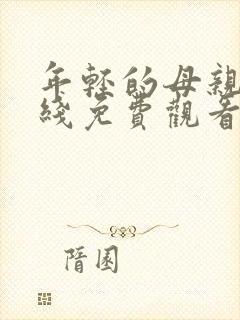 年輕的母親
綫免費觀看
隱園